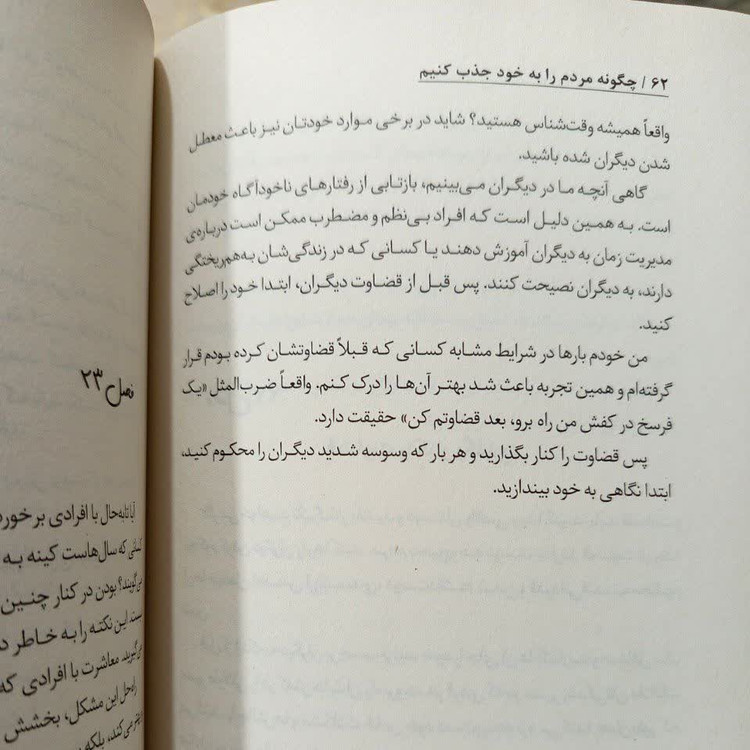 ۶۲ / چگونه مردم را به خود جذب کنیم
واقعاً همیشه وقت‌شناس هستید؟ شاید در برخی موارد خودتان نیز باعث معطل
شدن دیگران شده باشید.
گاهی آنچه ما در دیگران می‌بینیم، بازتابی از رفتارهای ناخودآگاه خودمان
است. به همین دلیل است که افراد بی‌نظم و مضطرب ممکن است درباره‌ی
مدیریت زمان به دیگران آموزش دهند یا کسانی که در زندگی‌شان به‌هم‌ریختگی
دارند، به دیگران نصیحت کنند. پس قبل از قضاوت دیگران، ابتدا خود را اصلاح
کنید.
من خودم بارها در شرایط مشابه کسانی که قبلاً قضاوتشان کرده بودم قرار
گرفته‌ام و همین تجربه باعث شد بهتر آن‌ها را درک کنم. واقعاً ضرب‌المثل «یک
فرسخ در کفش من راه برو، بعد قضاوتم کن» حقیقت دارد.
پس قضاوت را کنار بگذارید و هر بار که وسوسه شدید دیگران را محکوم کنید،
ابتدا نگاهی به خود بیندازید.
فصل ۲۳
آیا تابه‌حال با افرادی برخورد
کسانی که سال‌هاست کینه به
می‌گویند؟ بودن در کنار چنین
نیست. این نکته را به خاطر د
می‌گیرید. معاشرت با افرادی که
راه‌حل این مشکل، بخشش
می‌کند، بلکه